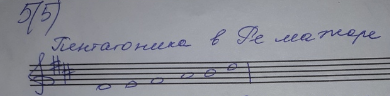 5(5)
Пентатоника в Ре мажоре